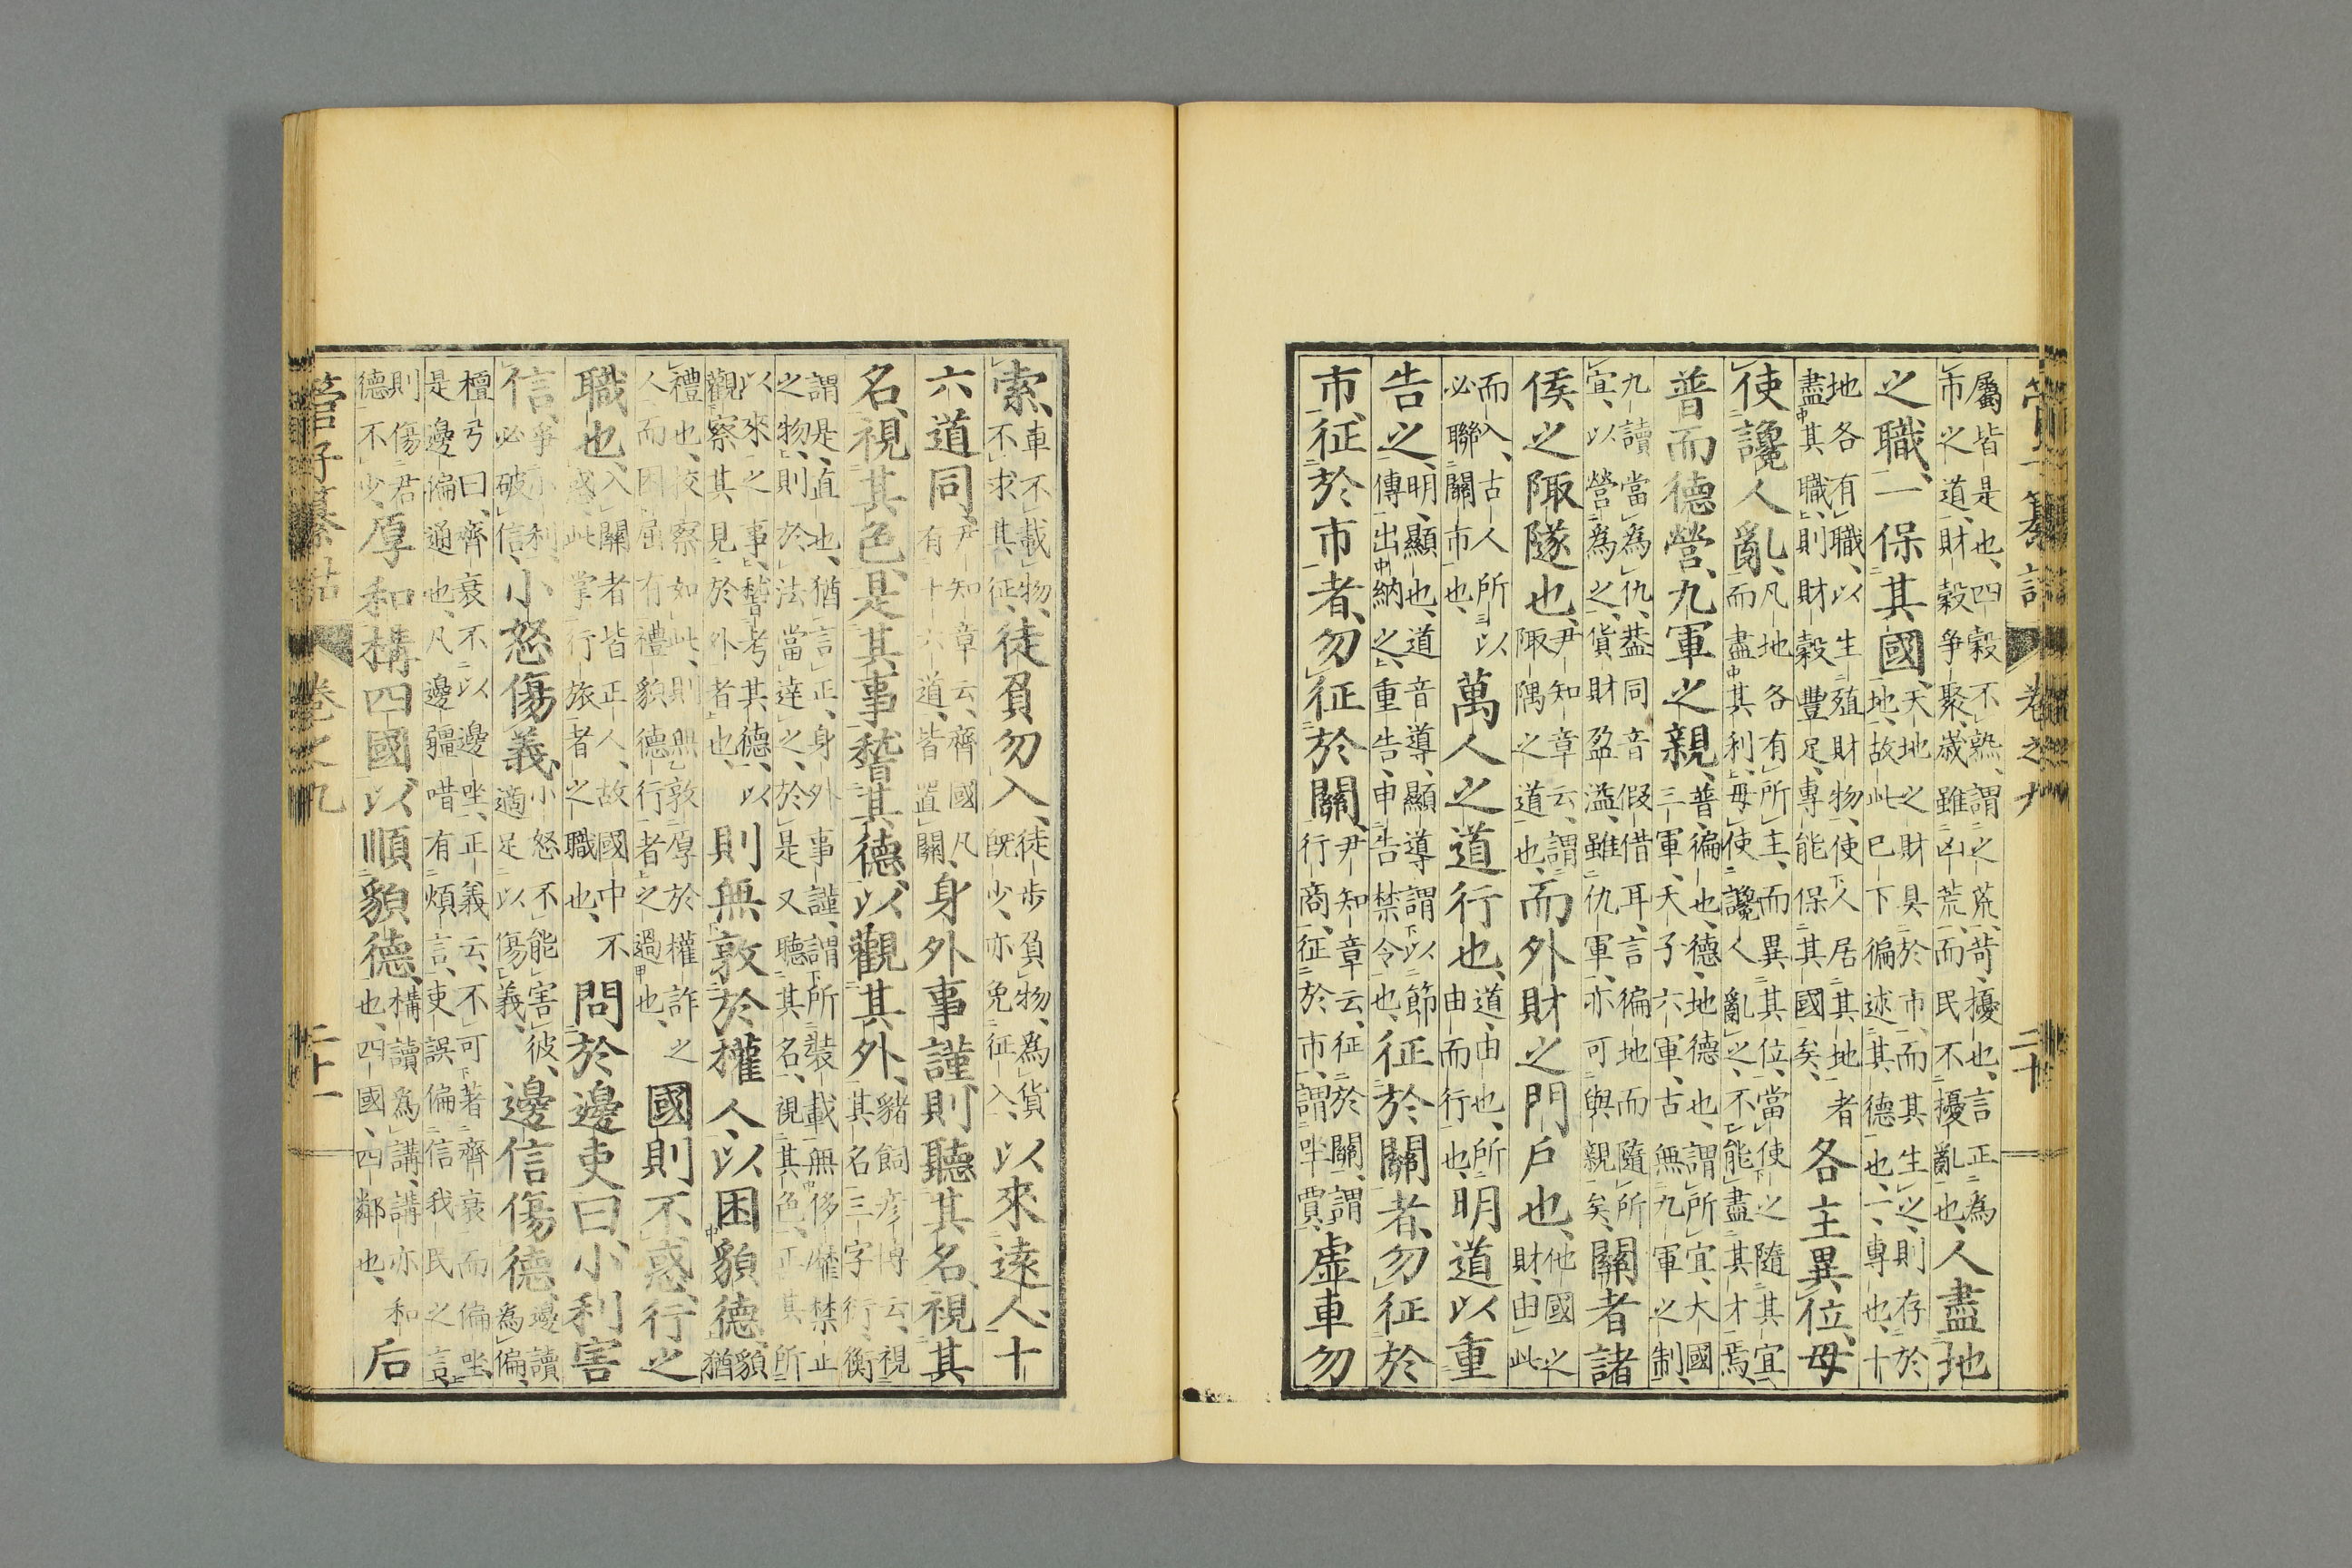 管子纂詁 卷之九 二十
屬皆是也、四穀不熟、謂之荒、苛、擾也、言正為
市之道、財穀爭聚、歲雖凶荒、而民不擾亂也、人盡地
之職、一保其國、天地之財具於市、而其生之、則存於
地、故此已下徧述其德也、一、專也、十
地各有職、以生殖財物、使人居其地者
盡其職、則財穀豐足、專能保其國矣、各主異位、毋
使讒人亂、凡地各有所主、而異其位、當使之隨其宜、
而盡其利、毋使讒人亂之、不能盡其才焉、
普而德營、九軍之親、普、徧也、德、地德也、謂所宜、大國
三軍、天子六軍、古無九軍之制、
九讀當為仇、葢同音假借耳、言徧地而隨所
宜、以營為之、貨財盈溢、雖仇軍、亦可與親矣、關者諸
侯之陬隧也、尹知章云、謂
陬隅之道也、而外財之門戶也、他國之
財、由此
而入、古人所以
必聯關市也、萬人之道行也、道、由也、所
由而行也、明道以重
告之、明、顯也、道音導、顯導謂以節
傳出納之、重告、申告禁令也、征於關者、勿征於
市、征於市者、勿征於關、尹知章云、征於關、謂
行商、征於市、謂坐賈、虛車勿
索、車不載物、
不求其征、徒負勿入、徒步負物、為貨
既少、亦免征入、以來遠人、十
六道同、尹知章云、齊國凡
有十六道、皆置關、身外事謹、則聽其名、視其
名、視其色、是其事、稽其德、以觀其外、豬飼彥博云、視
其名三字衍、衡
謂是、直也、猶言正、身外事謹、謂所裝載無侈靡禁止
之物、則於法當達之、於是又聽其名、視其色、正其所
以來之事、稽考其德、以
觀察其見於外者也、則無敦於權人、以困貌德、貌
猶
禮也、校察如此、則無敦厚於權詐之
人、而困屈有禮貌德行者之過也、國則不惑、行之
職也、入關者皆正人、故國中不
惑、此掌行旅者之職也、問於邊吏曰、小利害
信、爭小利、
必破信、小怒傷義、小怒不能害彼、
適足以傷義、邊信傷德、邊讀
為偏、
檀弓曰、齊衰不以邊坐、正義云、不可著齊衰而偏坐、
是邊偏通也、凡邊疆喈有煩言、吏誤偏信我民之言、
則傷君
德不少、厚和構四國、以順貌德、構讀為講、講亦和
也、四國、四鄰也、后
管子纂詁 卷之九 二十一